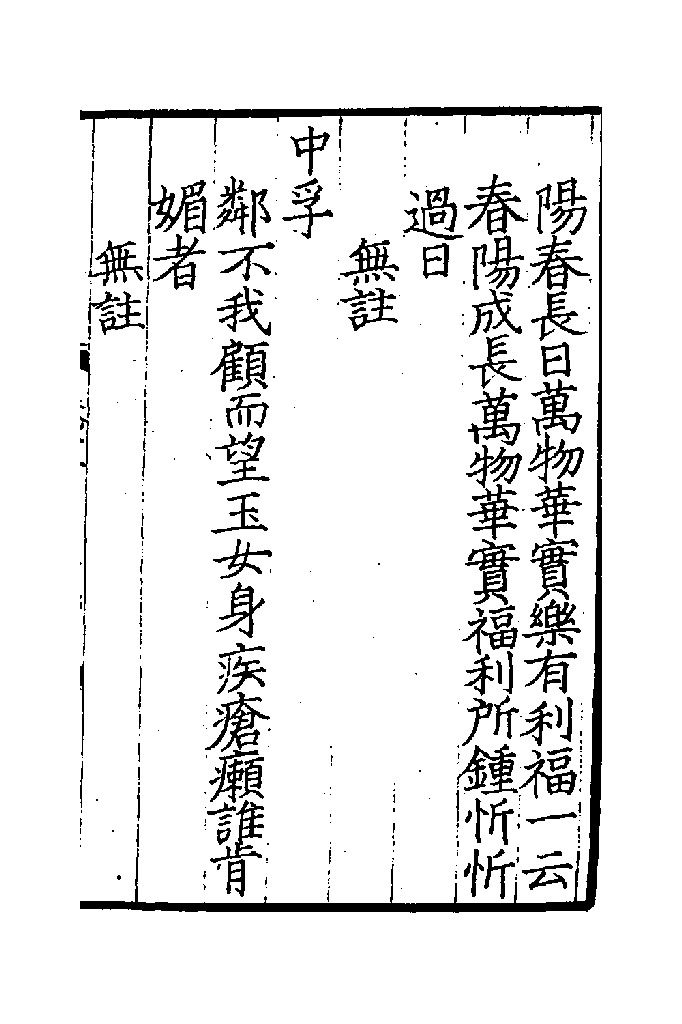 陽春長日萬物華實樂有利福一云
春陽成長萬物華實福利所鍾忻忻
過日
無註
中孚
鄰不我顧而望玉女身疾瘡癩誰肯
媚者
無註